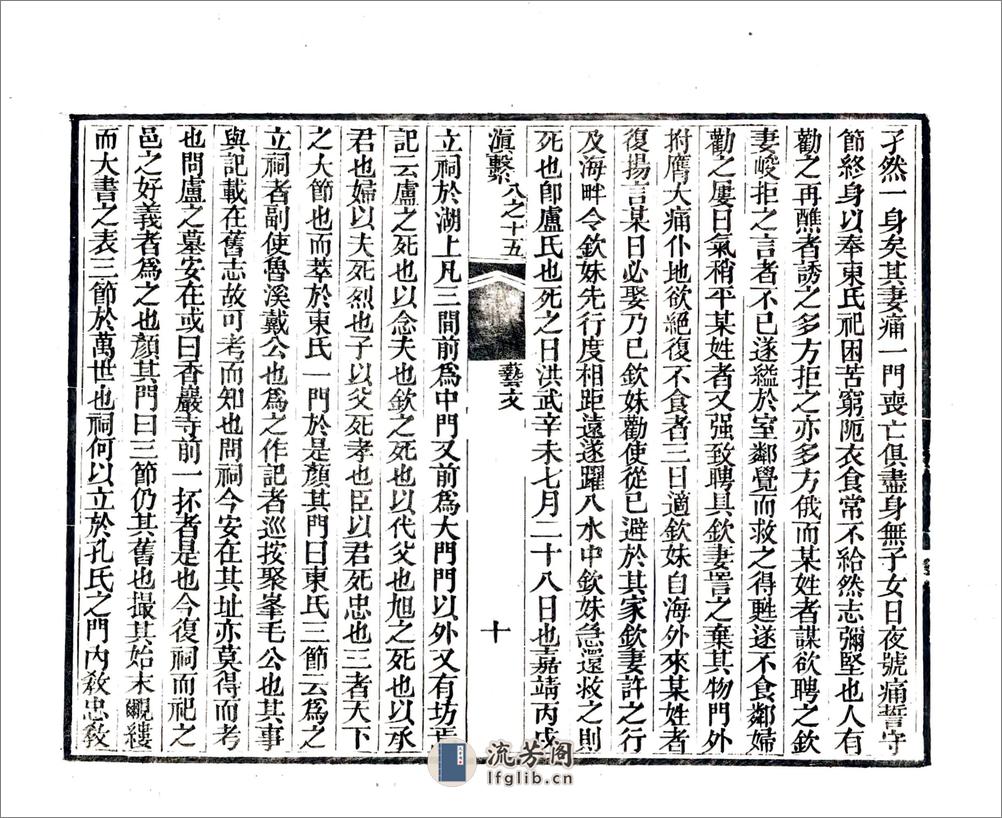 孑然一身矣其妻痛一門喪亡俱盡身無子女日夜號痛誓守
節終身以奉東氏祀困苦窮阨衣食常不給然志彌堅也人有
勸之再醮者誘之多方拒之亦多方俄而某姓者謀欲聘之欽
妻峻拒之言者不已遂縊於室鄰覺而救之得甦遂不食鄰婦
勸之屢日氣稍平某姓者又强致聘具欽妻詈之棄其物門外
拊膺大痛仆地欲絕復不食者三日適欽妹自海外來某姓者
復揚言某日必娶乃已欽妹勸使從已避於其家欽妻許之行
及海畔令欽妹先行度相距遠遂躍入水中欽妹急還救之則
死也卽盧氏也死之日洪武辛未七月二十八日也嘉靖丙戌
滇繫 八之十五 藝文 十
立祠於湖上凡三間前爲中門又前爲大門門以外又有坊焉
記云盧之死也以念夫也欽之死也以代父也旭之死也以承
君也婦以夫死烈也子以父死孝也臣以君死忠也三者天下
之大節也而萃於東氏一門於是顏其門曰東氏三節云爲之
立祠者副使魯溪戴公也爲之作記者巡按聚峯毛公也其事
與記載在舊志故可考而知也問祠今安在其址亦莫得而考
也問盧之墓安在或曰香巖寺前一抔者是也今復祠而祀之
邑之好義者爲之也顏其門曰三節仍其舊也撮其始末覼縷
而大書之表三節於萬世也祠何以立於孔氏之門內教忠教
流芳阁
lfglib.cn